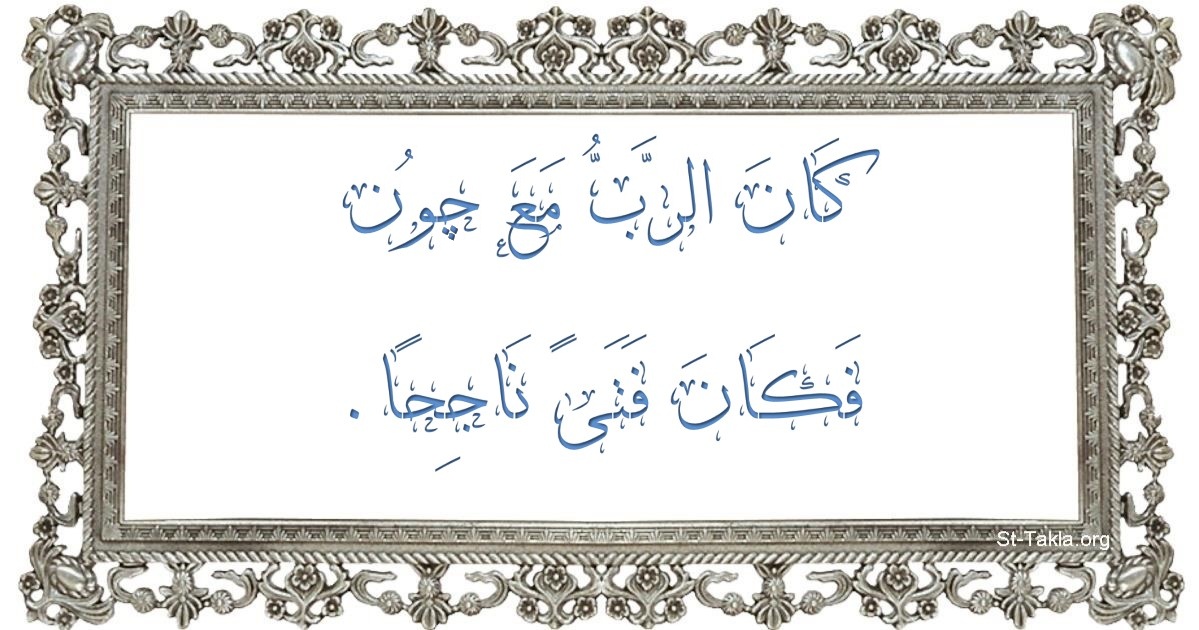 كَانَ الرَّبُّ مَعَ چونُ
فَكَانَ فَتَىً نَاجِحًا .
St-Takla.org